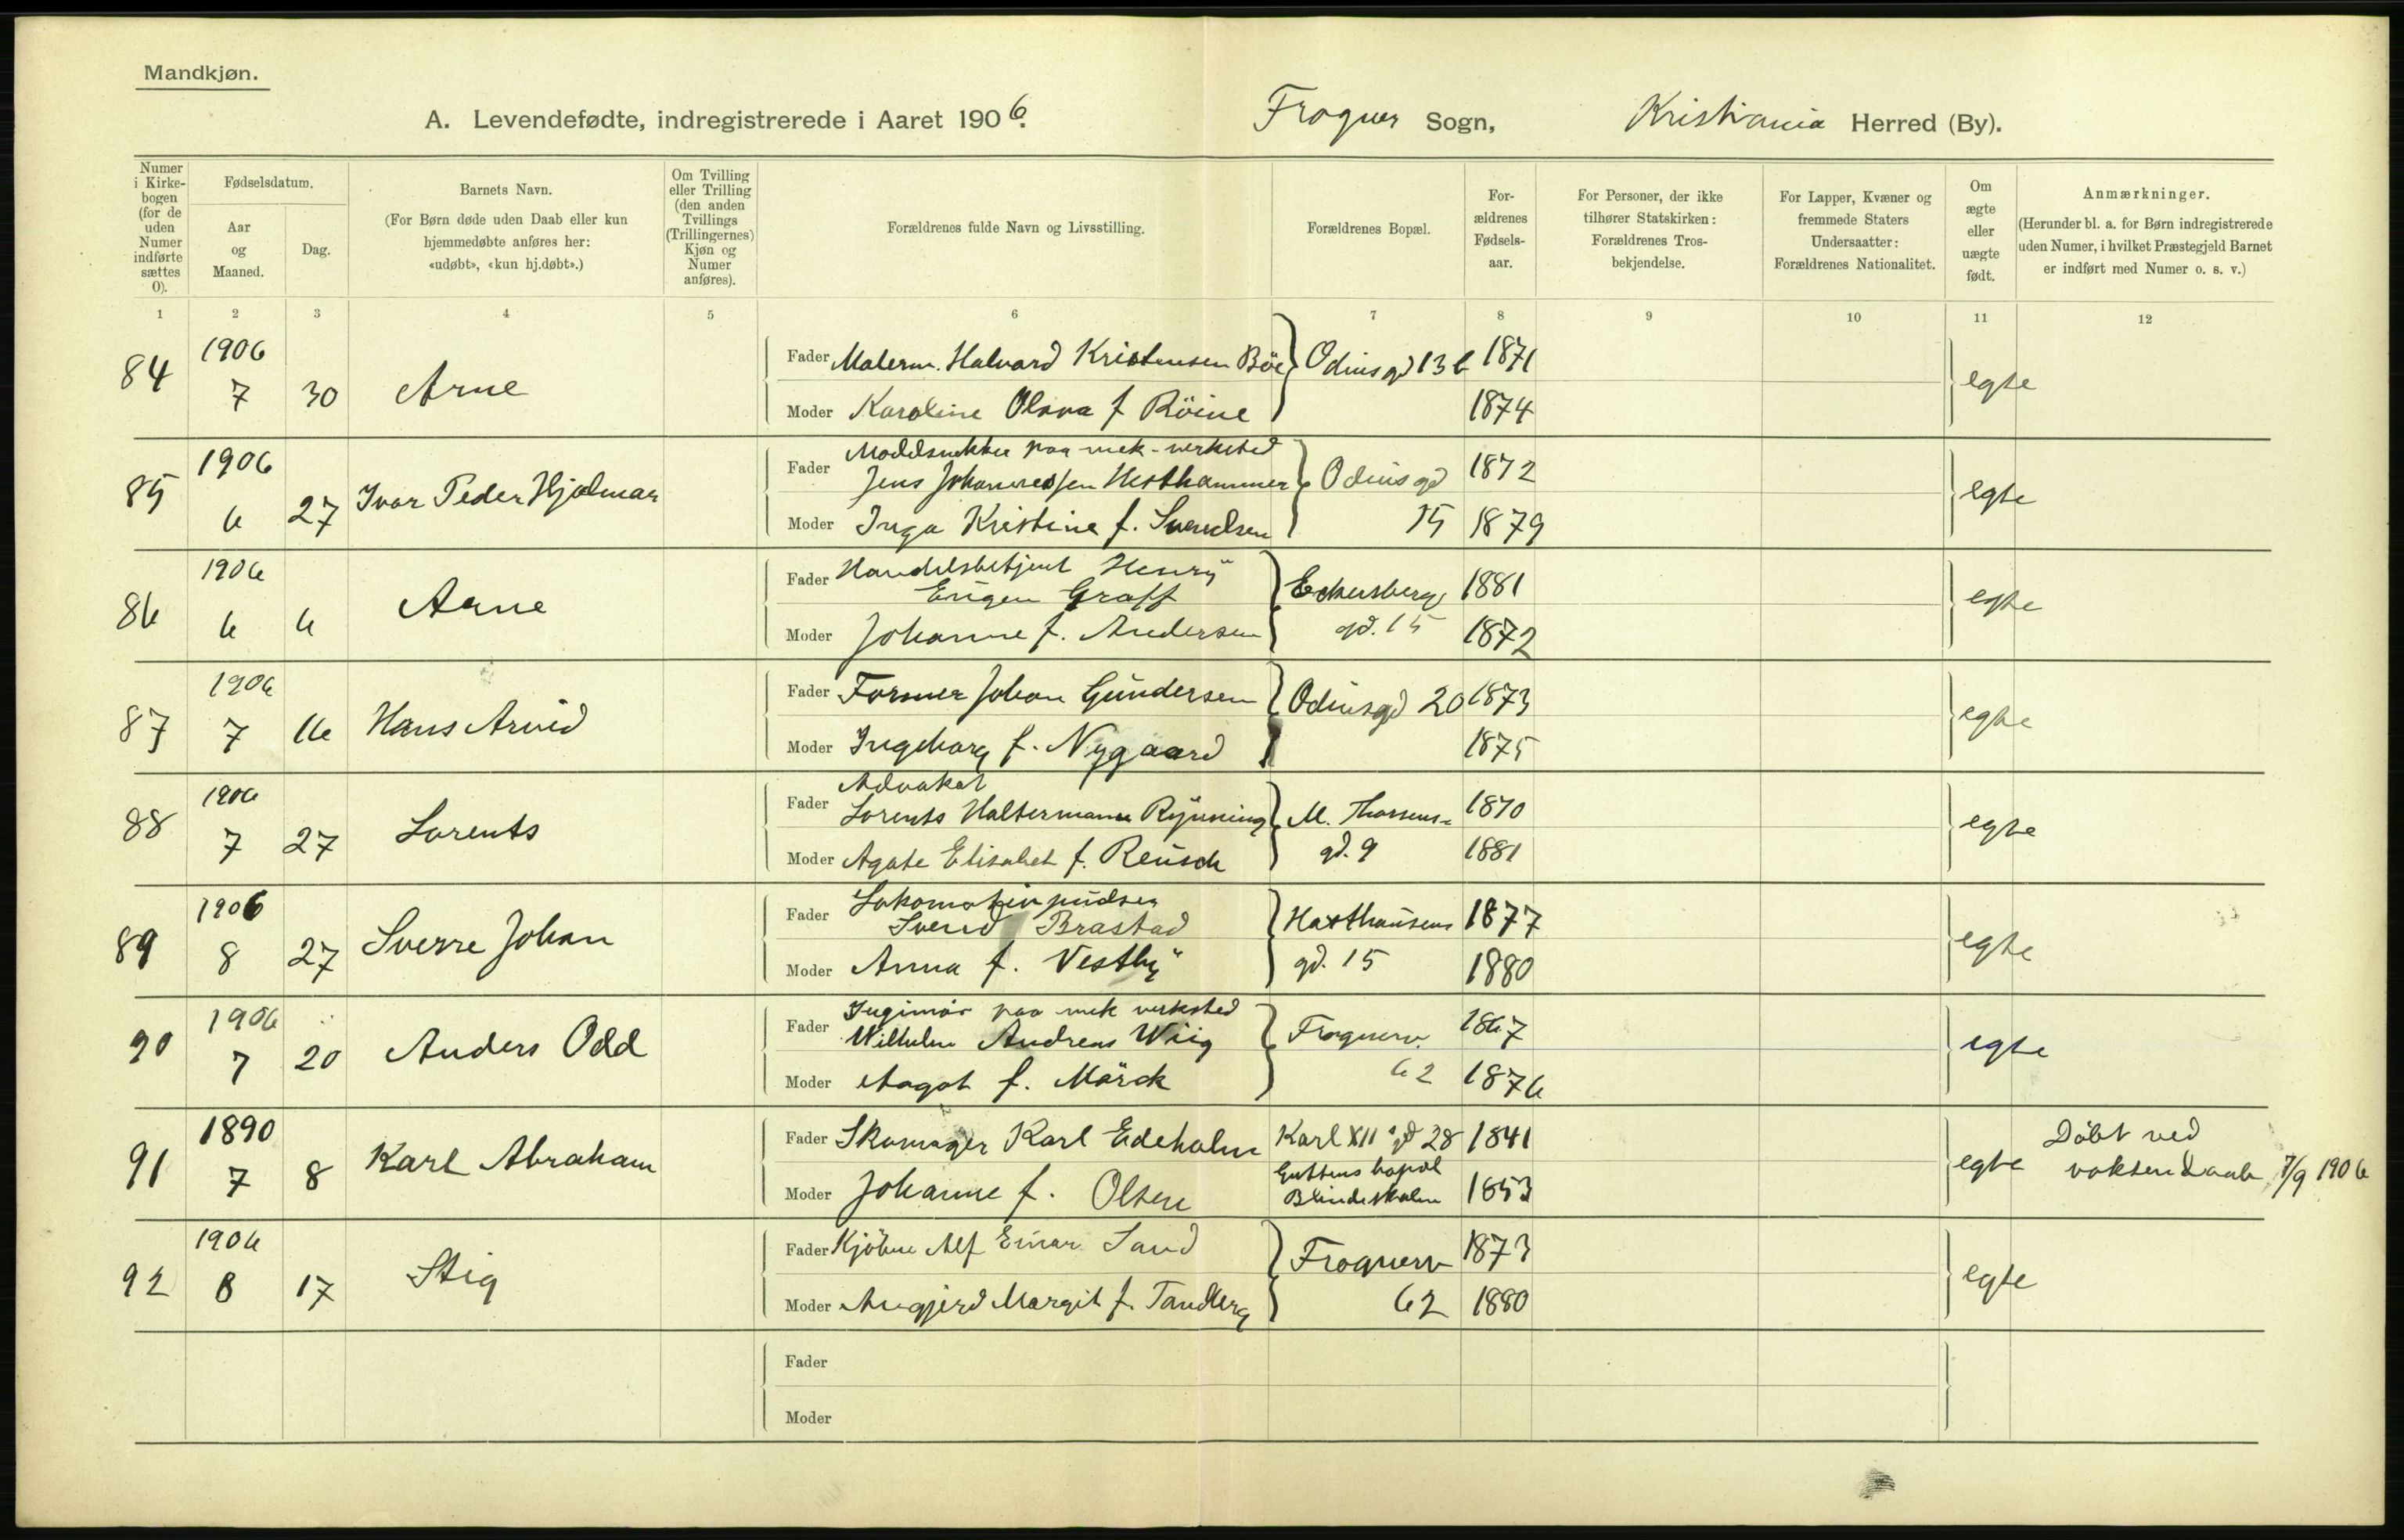 Mandkjøn.
A. Levendefødte, indregistrerede i Aaret 1906. Frogner Sogn, Kristiania Herred (By).
Numer i Kirkebogen (for de uden Numer indførte sættes 0).
Fødselsdatum.
Aar og Maaned.
Dag.
Barnets Navn.
(For Børn døde uden Daab eller kun hjemmedøbte anføres her: «udøbt», «kun hj.døbt».)
Om Tvilling eller Trilling (den anden Tvillings (Trillingernes) Kjøn og Numer anføres).
Forældrenes fulde Navn og Livsstilling.
Forældrenes Bopæl.
Forældrenes Fødselsaar.
For Personer, der ikke tilhører Statskirken: Forældrenes Trosbekjendelse.
For Lapper, Kvæner og fremmede Staters Undersaatter: Forældrenes Nationalitet.
Om ægte eller uægte født.
Anmærkninger.
(Herunder bl. a. for Børn indregistrerede uden Numer, i hvilket Præstegjeld Barnet er indført med Numer o. s. v.)
1 2 3 4 5 6 7 8 9 10 11 12
84 1906 7 30 Arne
Fader Malerm. Halvard Kristensen Böe Odinsgd 13 b 1871 egte
Moder Karoline Olava f Röine 1874
85 1906 6 27 Ivar Peder Hjalmar
Fader Modelsnekker paa mek-verksted
Jens Johannessen Hesthammer Odinsgd 1872 egte
Moder Inga Kristine f. Svendsen 15 1879
86 1906 6 6 Arne
Fader Handelsbetjent Henry
Eugen Graff Eckersbergs 1881 egte
Moder Johanne f. Andersen gd. 15 1872
87 1906 7 16 Hans Arvid
Fader Former Johan Gundersen Odinsgd 20 1873 egte
Moder Ingeborg f. Nygaard 1875
88 1906 7 27 Lorents
Fader Advokat
Lorents Haltermann Rynning M. Thoresens 1870 egte
Moder Agate Elisabet f. Reusch gd. 9 1881
89 1906 8 27 Sverre Johan
Fader Lokomotivpudser
Svend Brastad Haxthausens 1877 egte
Moder Anna f. Vestby gd. 15 1880
90 1906 7 20 Anders Odd
Fader Ingeniör paa mek verksted
Wilhelm Andreas Wiig Frognerv. 1867 egte
Moder Aagot f. Mörck 62 1876
91 1890 7 8 Karl Abraham
Fader Skomager Karl Edeholm Karl XII's gd 28 1841 egte Döbt ved voksendaab 7/9 1906
Moder Johanne f. Olsen Guttens bopæl Blindeskolen 1853
92 1906 8 17 Stig
Fader Kjöbm Alf Einar Sand Frognerv 1873 egte
Moder Margit f. Tandberg 62 1880
Fader
Moder